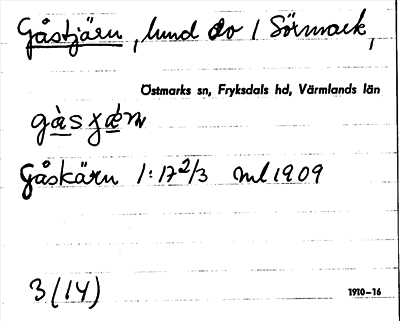 Gåstjärn, lund so / Sörmark,
Östmarks sn, Fryksdals hd, Värmlands län
Gåskärn 1:17 2/3 ml 1909
3 (14)
1910–16